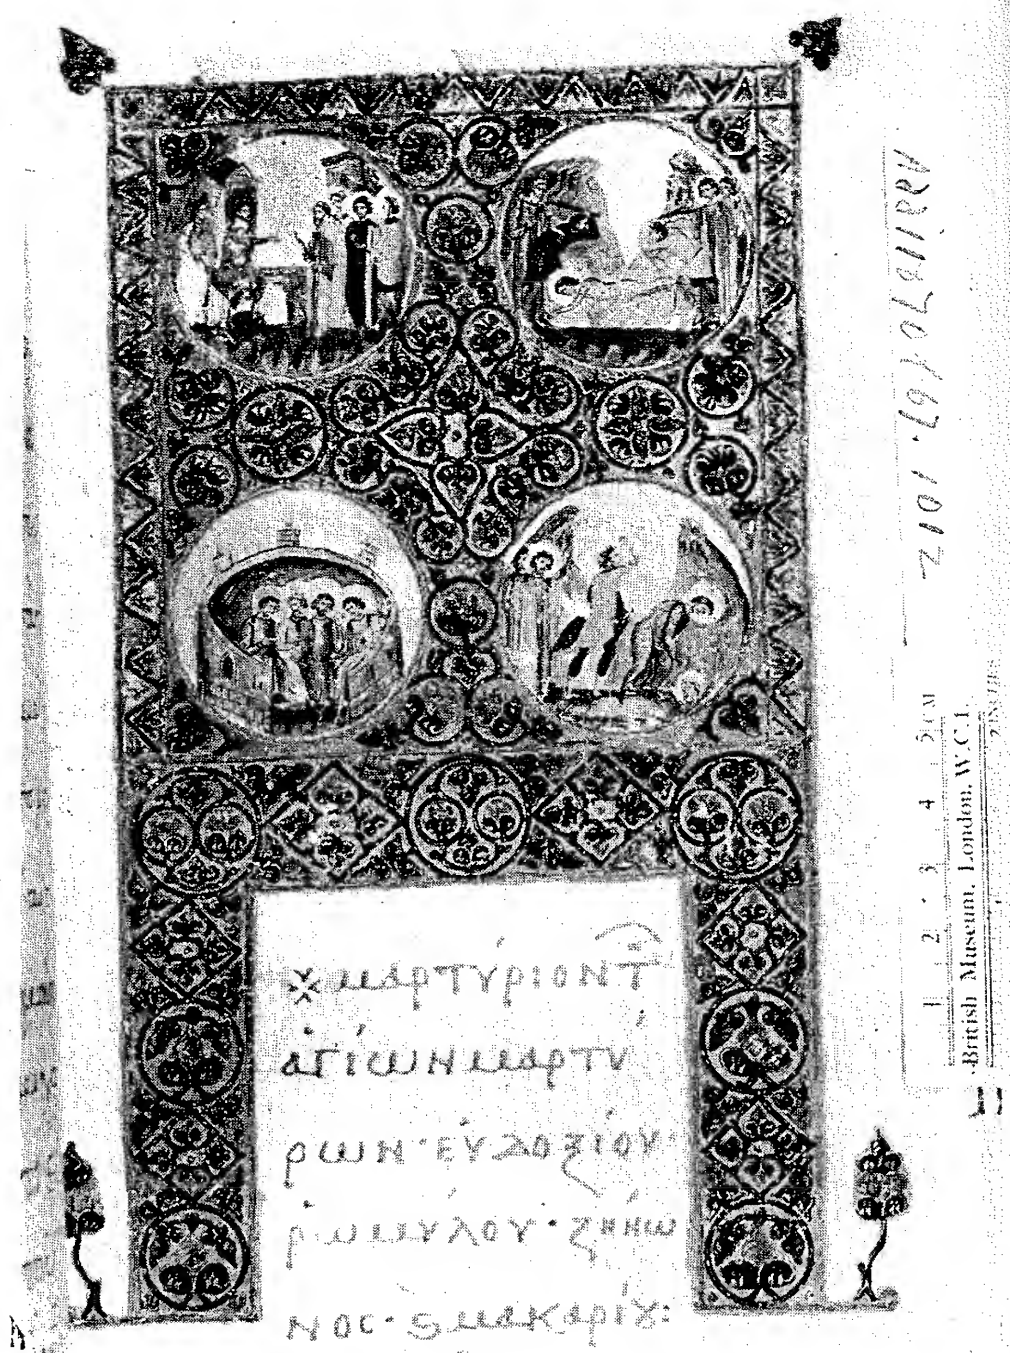 μαρτύριον τ̃
ἁγίων μαρτύ
ρων· εὐδοξίου·
ῥωμύλου· ζήνω
νος· ϛ μακαρίȣ:
1 2 3 4 5CM
British Museum, London, W.C.1.